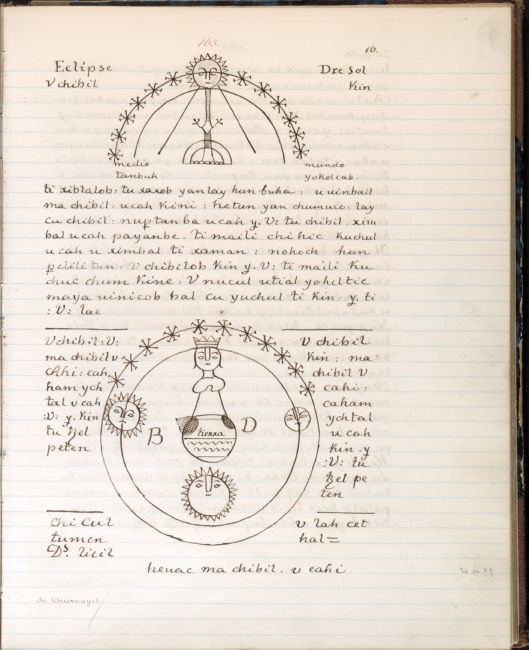 163.
16.
Eclipse
V chibil
Dre Sol
Kin
medio
tanbuh
mundo
yokolcab
ti xiblalob: tu xaxob yanlay hun buha: u uinbail
ma chibil: ucah Kini: hetun yan chumuc: lay
cu chibil: nuptanba ucah y. V: tu chibil. xim
bal ucah payanbe. ti maili chihic Kuchul
u cah u ximbal ti xaman: nohoch: hun
pelili tun: V chibilob Kin y. V: ti maili Ku
chuc chum Kine: V nucul utial yoheltic
maya uinicob bal cu yuchul ti Kin: y. ti
: V: lae
V chibil: V:
ma chibil v
cahi: cah,
ham ych
tal v cah
:V: y. Kin
tu tzel
peten
V chibil
Kin: ma
chibil V
cahi:
caham
ychtal
u cah
Kin. y
:V: tu
tzel pe
ten
B
D
tienna
Chi Cul
tumen
Ds: licil
v lah cet
hal=
heuac ma chibil. v cahi
de Chumayel